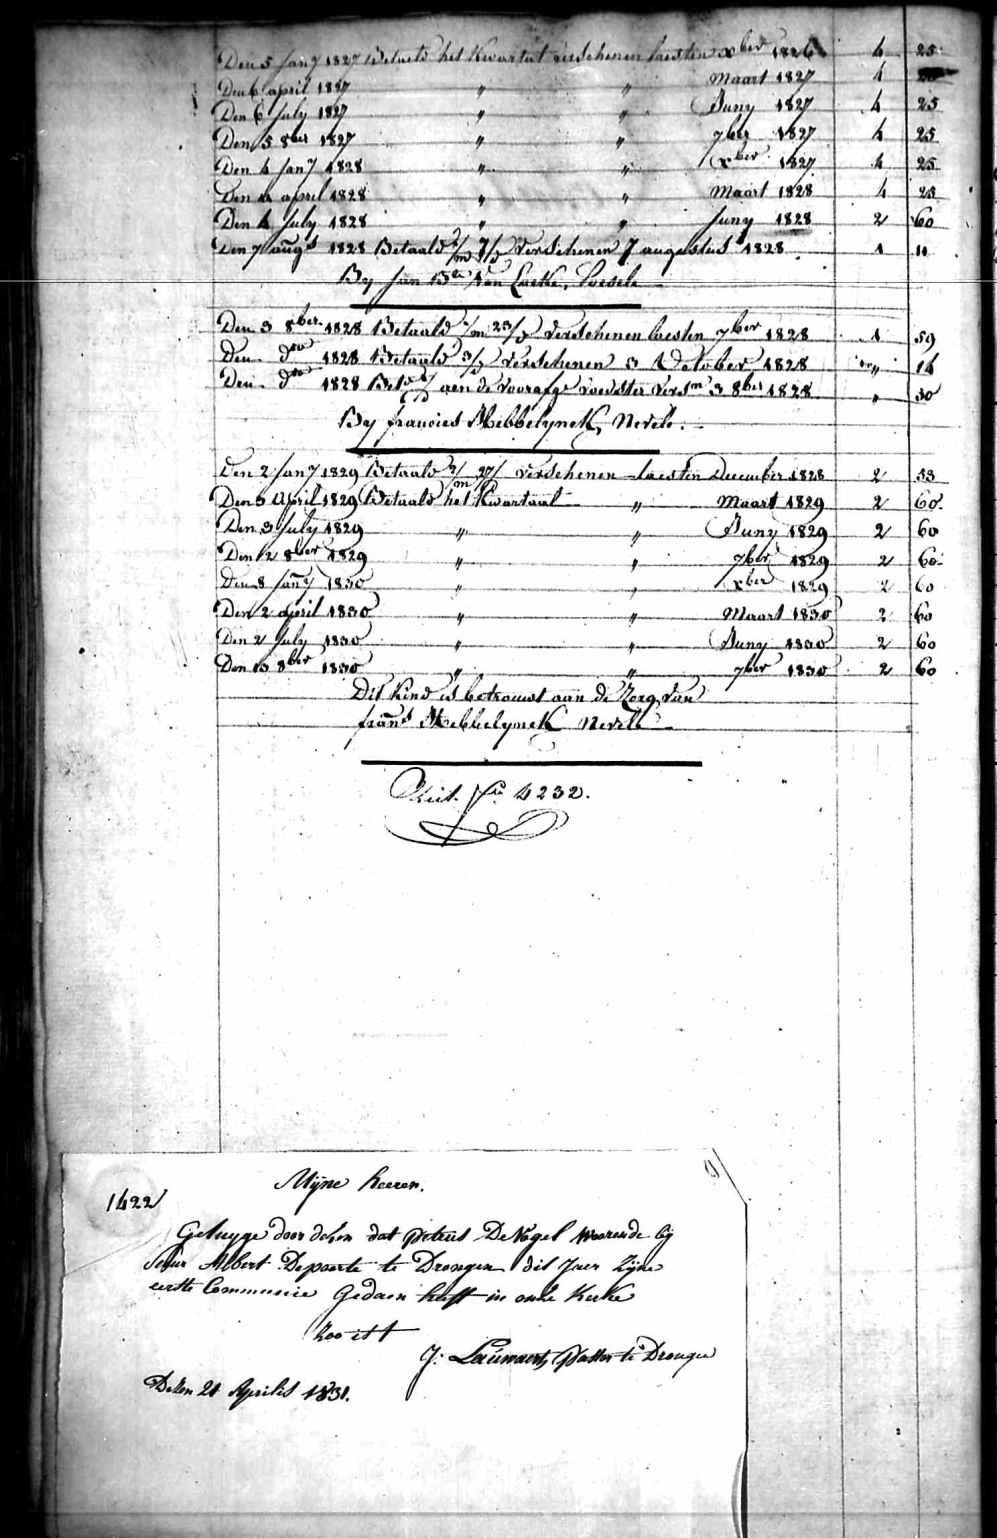 Den 5 Jany 1827 Betaeld het Kwartal verschenen laesten xber 1826 4 25
Den 6 april 1827 " " Maart 1827 4
Den 6 July 1827 " " Juny 1827 4 25
Den 5 8ber 1827 " " 7ber 1827 4 25
Den 4 Jany 1828 " " xber 1827 4 25
Den 4 april 1828 " " Maart 1828 4 25
Den 4 July 1828 " " Juny 1828 2 60
Den 7 augt 1828 Betaald verschenen 7 augustus 1828 1 11
By Jan Bte Van
Den 3 8ber 1828 Betaald verschenen laesten 7ber 1828 1 59
Den do 1828 Betaald 3/ verschenen 3 October 1828 " 14
Den do 1828 aen de voorafge voedster versn 3 8ber 1828 " 30
By francies Mebbelynck, Nevele.
Den 2 Jany 1829 Betaald verschenen laesten December 1828 2 53
Den 3 April 1829 Betaald het Kwartaal " Maart 1829 2 60
Den 3 July 1829 " " Juny 1829 2 60
Den 2 8ber 1829 " " 7ber 1829 2 60
Den 8 Jany 1830 " " xber 1829 2 60
Den 2 april 1830 " " Maart 1830 2 60
Den 2 July 1830 " " Juny 1830 2 60
Den 13 8ber 1830 " " 7ber 1830 2 60
Dit Kind is betrouwt aan de Zorg van
frans Mebbelynck Nevele
4232.
Mijne heeren.
1422
Getuyge door desen dat Petrus De Vogel woonende bij
Sieur Albert Depoorte te Drongen dit Jaer Zijne
eerste Communie Gedaen heeft in onse Kerke
Zoo ist
J. Pastor te Drongen
Desen 21 Aprilis 1831.